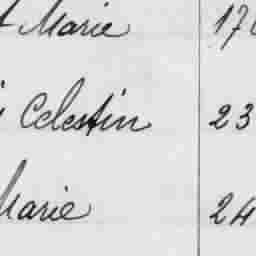 Marie 17
Celestin 23
Marie 24